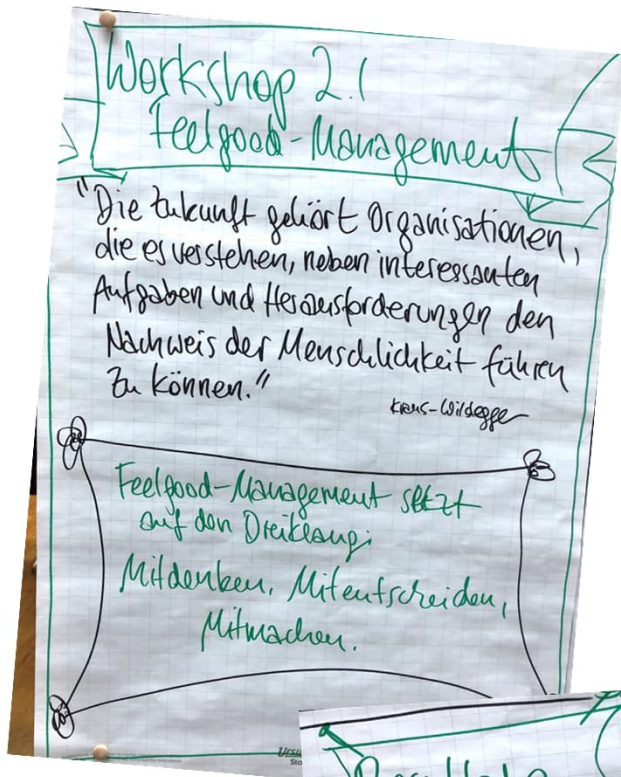 Workshop 2.1
Feelgood-Management
"Die Zukunft gehört Organisationen,
die es verstehen, neben interessanten
Aufgaben und Herausforderungen den
Nachweis der Menschlichkeit führen
zu können."
Kraus-Wildegger
Feelgood-Management setzt
auf den Dreiklang:
Mitdenken, Mitentscheiden,
Mitmachen.